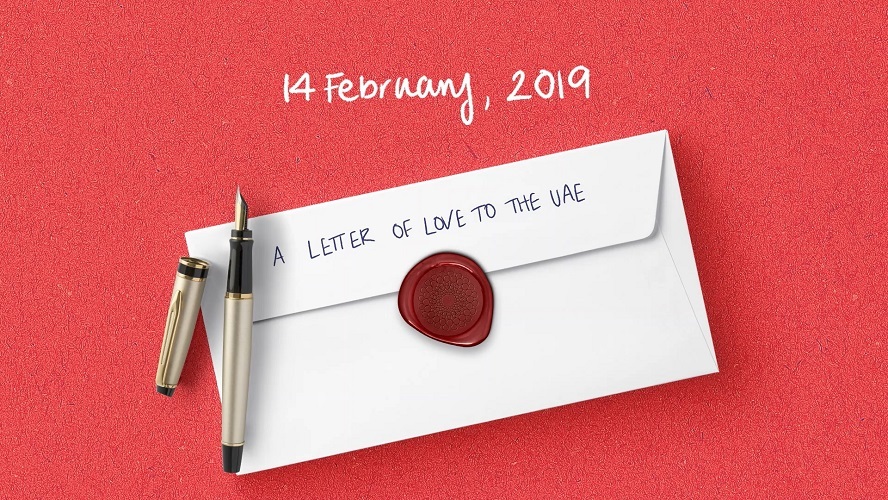 14 February, 2019
A LETTER OF LOVE TO THE UAE